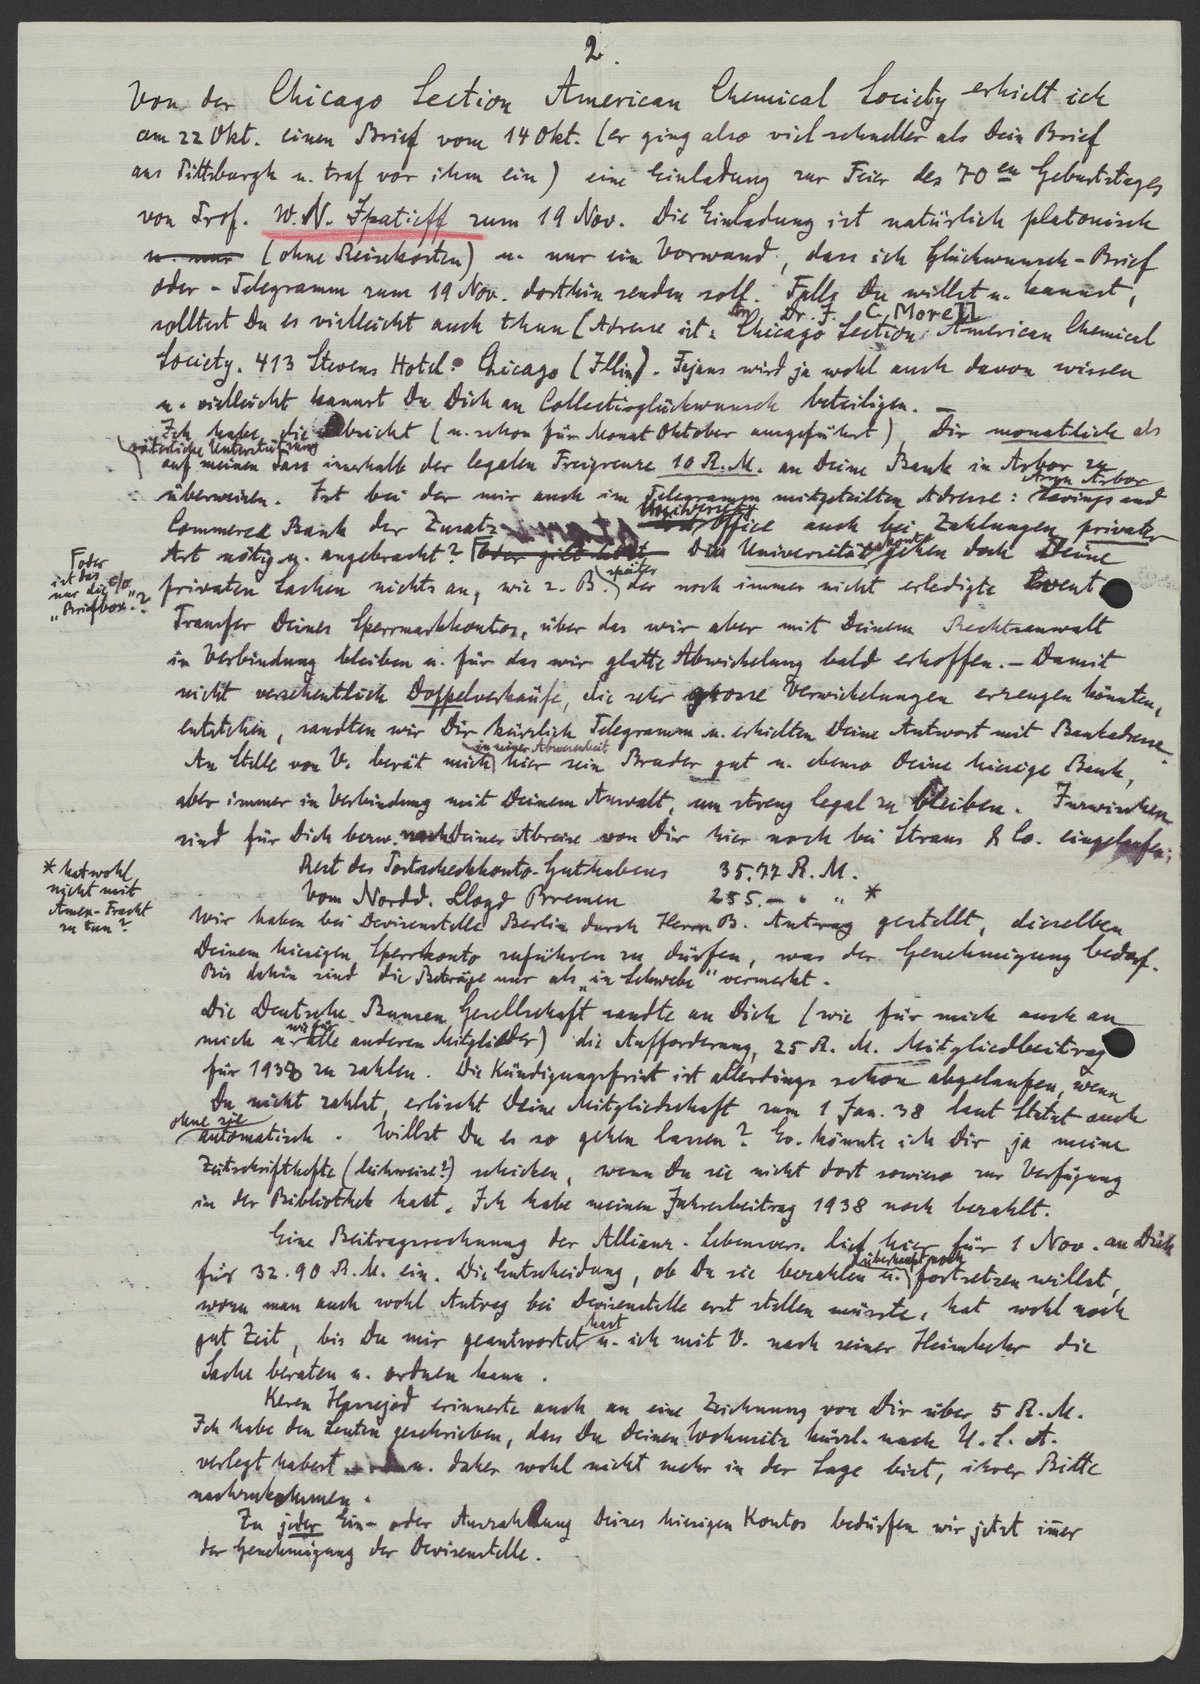 2.
Von der Chicago Section American Chemical Society erhielt ich
am 22 Okt. einen Brief vom 14 Okt. (er ging also viel schneller als Dein Brief
aus Pittsburgh u. traf vor ihm ein) eine Einladung zur Feier des 70en Geburtstages
von Prof. W. N. Ipatieff zum 19 Nov. Die Einladung ist natürlich platonisch
u. nur (ohne Reisekosten) u. nur ein Vorwand, dass ich Glückwunsch-Brief
oder - Telegramm zum 19 Nov. dorthin senden soll. Falls Du willst u. kannst,
Dr. J. C. Morell
solltest Du es vielleicht auch thun (Adresse ist: Chicago Section American Chemical
Society. 413 Stevens Hotel. Chicago (Illin). Fajans wird ja wohl auch davon wissen
u. vielleicht kannst Du Dich an Collectivglückwunsch beteiligen. —
Ich habe die Absicht (u. schon für Monat Oktober ausgeführt), Dir monatlich als
väterliche Unterstützung
auf meinen Pass innerhalb der legalen Freigrenze 10 R.M. an Deine Bank in Arbor zu
Ann Arbor
überweisen. Ist bei der mir auch im Telegramm mitgeteilten Adresse: Savings and
University
Commerce Bank der Zusatz office auch bei Zahlungen privater
Art nötig u. angebracht? Foder gilt Die Universität gehen doch Deine
Foder
ist das
nur die c/o
"Briefbox"?
später
privaten Sachen nichts an, wie z. B. der noch immer nicht erledigte Event.
Transfer Deines Sperrmarkkontos, über das wir aber mit Deinem Rechtsanwalt
in Verbindung bleiben u. für das wir glatte Abwickelung bald erhoffen. — Damit
nicht versehentlich Doppelverkäufe, die sehr grosse Verwickelungen erzeugen könnten,
entstehen, sandten wir Dir kürzlich Telegramm u. erhielten Deine Antwort mit Bankadresse.
in seiner Abwesenheit
An Stelle von V. berät mich hier sein Bruder gut u. ebenso Deine hiesige Bank,
aber immer in Verbindung mit Deinem Anwalt, um streng legal zu bleiben. Inzwischen
sind für Dich bezw. nach Deiner Abreise von Dir hier noch bei Straus & Co. eingelaufen:
Rest des Postscheckkonto-Guthabens 35.77 R.M.
Vom Nordd. Lloyd Bremen 255.— " " *
* hat wohl
nicht mit
Amer-Fracht
zu tun?
Wir haben bei Devisenstelle Berlin durch Herrn B. Antrag gestellt, dieselben
Deinem hiesigen Sperrkonto zuführen zu dürfen, was der Genehmigung bedarf.
Bis dahin sind die Beträge nur als "in Schwebe" vermerkt.
Die Deutsche Bunsen Gesellschaft sandte an Dich (wie für mich auch an
wie für
mich u. alle anderen Mitglieder) die Aufforderung, 25 R. M. Mitgliedbeitrag
für 1938 zu zahlen. Die Kündigungsfrist ist allerdings schon abgelaufen, wenn
Du nicht zahlst, erlischt Deine Mitgliedschaft zum 1 Jan. 38 laut Statut auch
ohne sie
automatisch. Willst Du es so gehen lassen? Ev. könnte ich Dir ja meine
Zeitschrifthefte (leihweise?) schicken, wenn Du sie nicht dort sowieso zur Verfügung
in der Bibliothek hast. Ich habe meinen Jahresbeitrag 1938 noch bezahlt.
Eine Beitragsrechnung der Allianz-Lebensvers. lief hier für 1 Nov. an Dich
überhaupt noch
für 32.90 R.M. ein. Die Entscheidung, ob Du sie bezahlen u. fortsetzen willst,
wozu man auch wohl Antrag bei Devisenstelle erst stellen müsste, hat wohl noch
hast
gut Zeit, bis Du mir geantwortet u. ich mit V. nach seiner Heimkehr die
Sache beraten u. ordnen kann.
Keren Hajessod erinnerte auch an eine Zeichnung von Dir über 5 R.M.
Ich habe den Leuten geschrieben, dass Du Deinen Wohnsitz kürzl. nach U. S. A.
verlegt habest u. daher wohl nicht mehr in der Lage bist, ihrer Bitte
nachzukommen.
Zu jeder Ein- oder Auszahlung Deines hiesigen Kontos bedürfen wir jetzt immer
der Genehmigung der Devisenstelle.